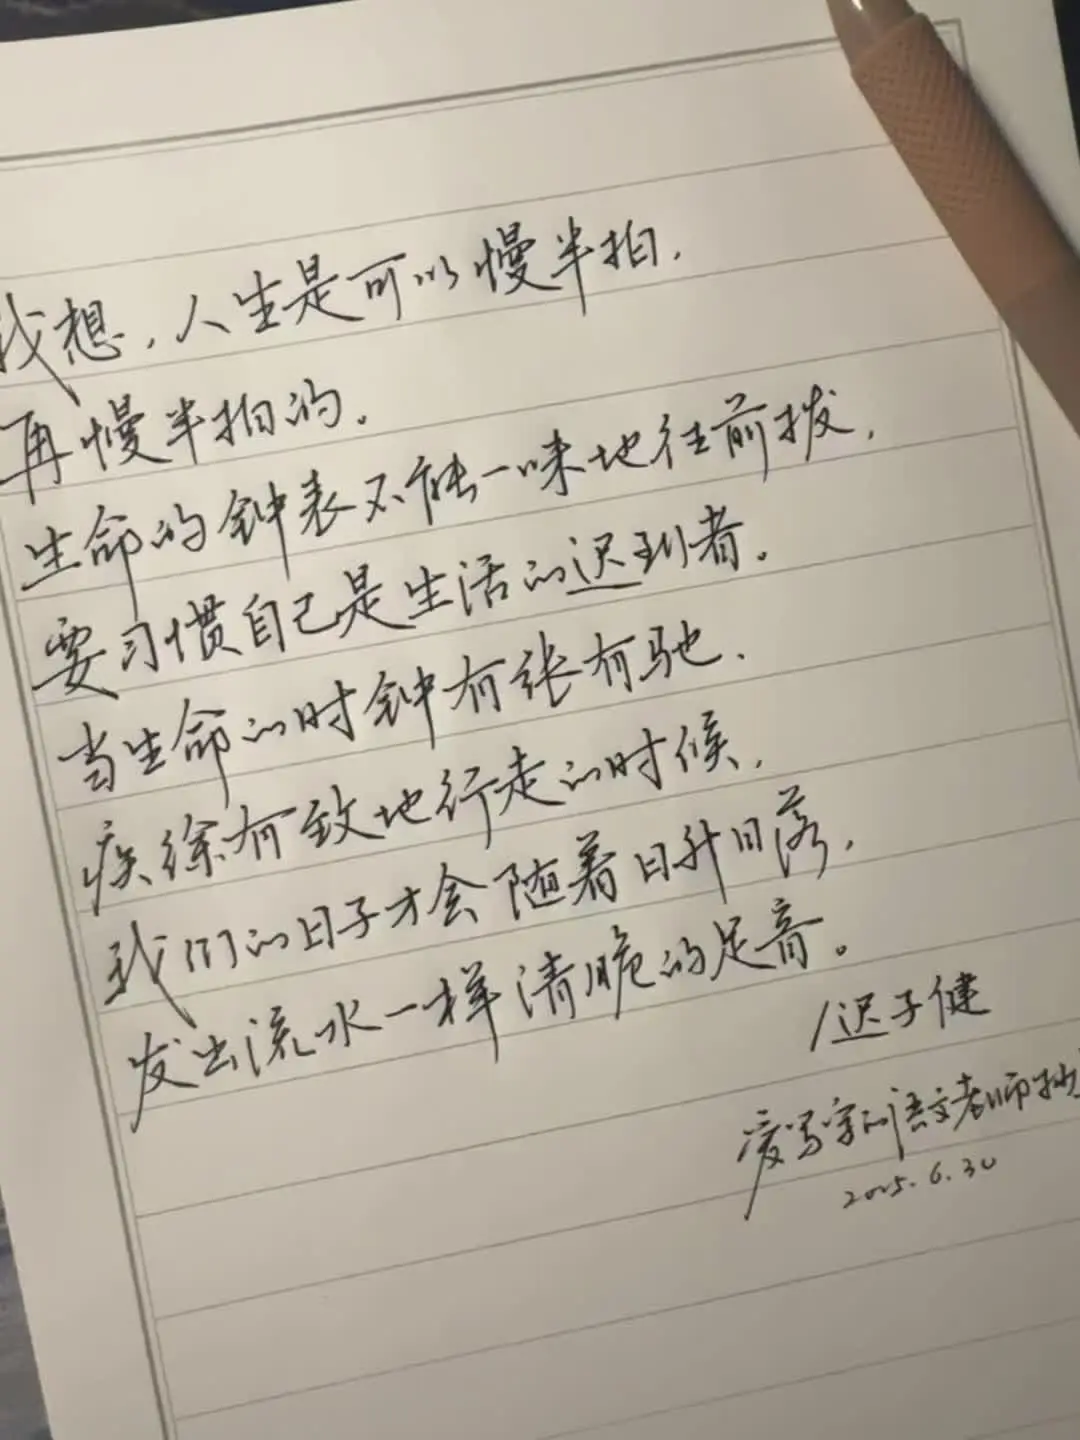 我想，人生是可以慢半拍，
再慢半拍的。
生命的钟表不能一味地往前拨，
要习惯自己是生活的迟到者。
当生命的时钟有张有驰，
疾徐有致地行走的时候，
我们的日子才会随着日升日落，
发出流水一样清脆的足音。
/迟子健
爱写字的语文老师抄
2025.6.30